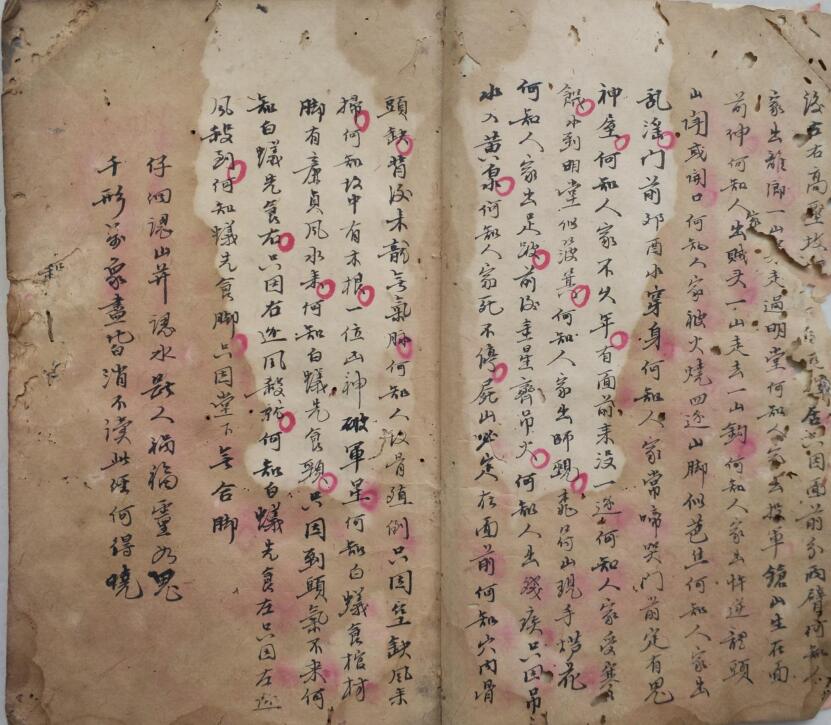 家出離鄉一山走過明堂何知人家出軍鎗山生在面
前神何知人家出賊子一山走去一山鈎何知人家出忤逆龍頭
山開或開口何知人家被火燒四边山脚似芭蕉何知人家出
乱淫門前卯酉水穿身何知人家常啼哭門前定有鬼
神屋何知人家不久年有面前来没一边何知人家受寒
餓水到明堂似簸箕何知人家出師現手
何知人家出足跛前後青星齊吊火何知人出殘疾只因吊
水入黃泉何知人家死不停屍山必定在面前何知穴內骨
頭缺背後来龍無氣脉何知人設骨殖倒只因空缺風来
掃何知坟中有木根一位山神破軍星何知白蟻食棺材
脚有廉貞風水来何知白蟻先食頭只因到頭氣不来何
知白蟻先食右只因右边風殺何知白蟻先食左只因左边
風殺到何知蟻先食脚只因堂下無合脚
仔細認山并認水是人禍福靈如鬼
千形萬象盡皆消不讀此經何得曉